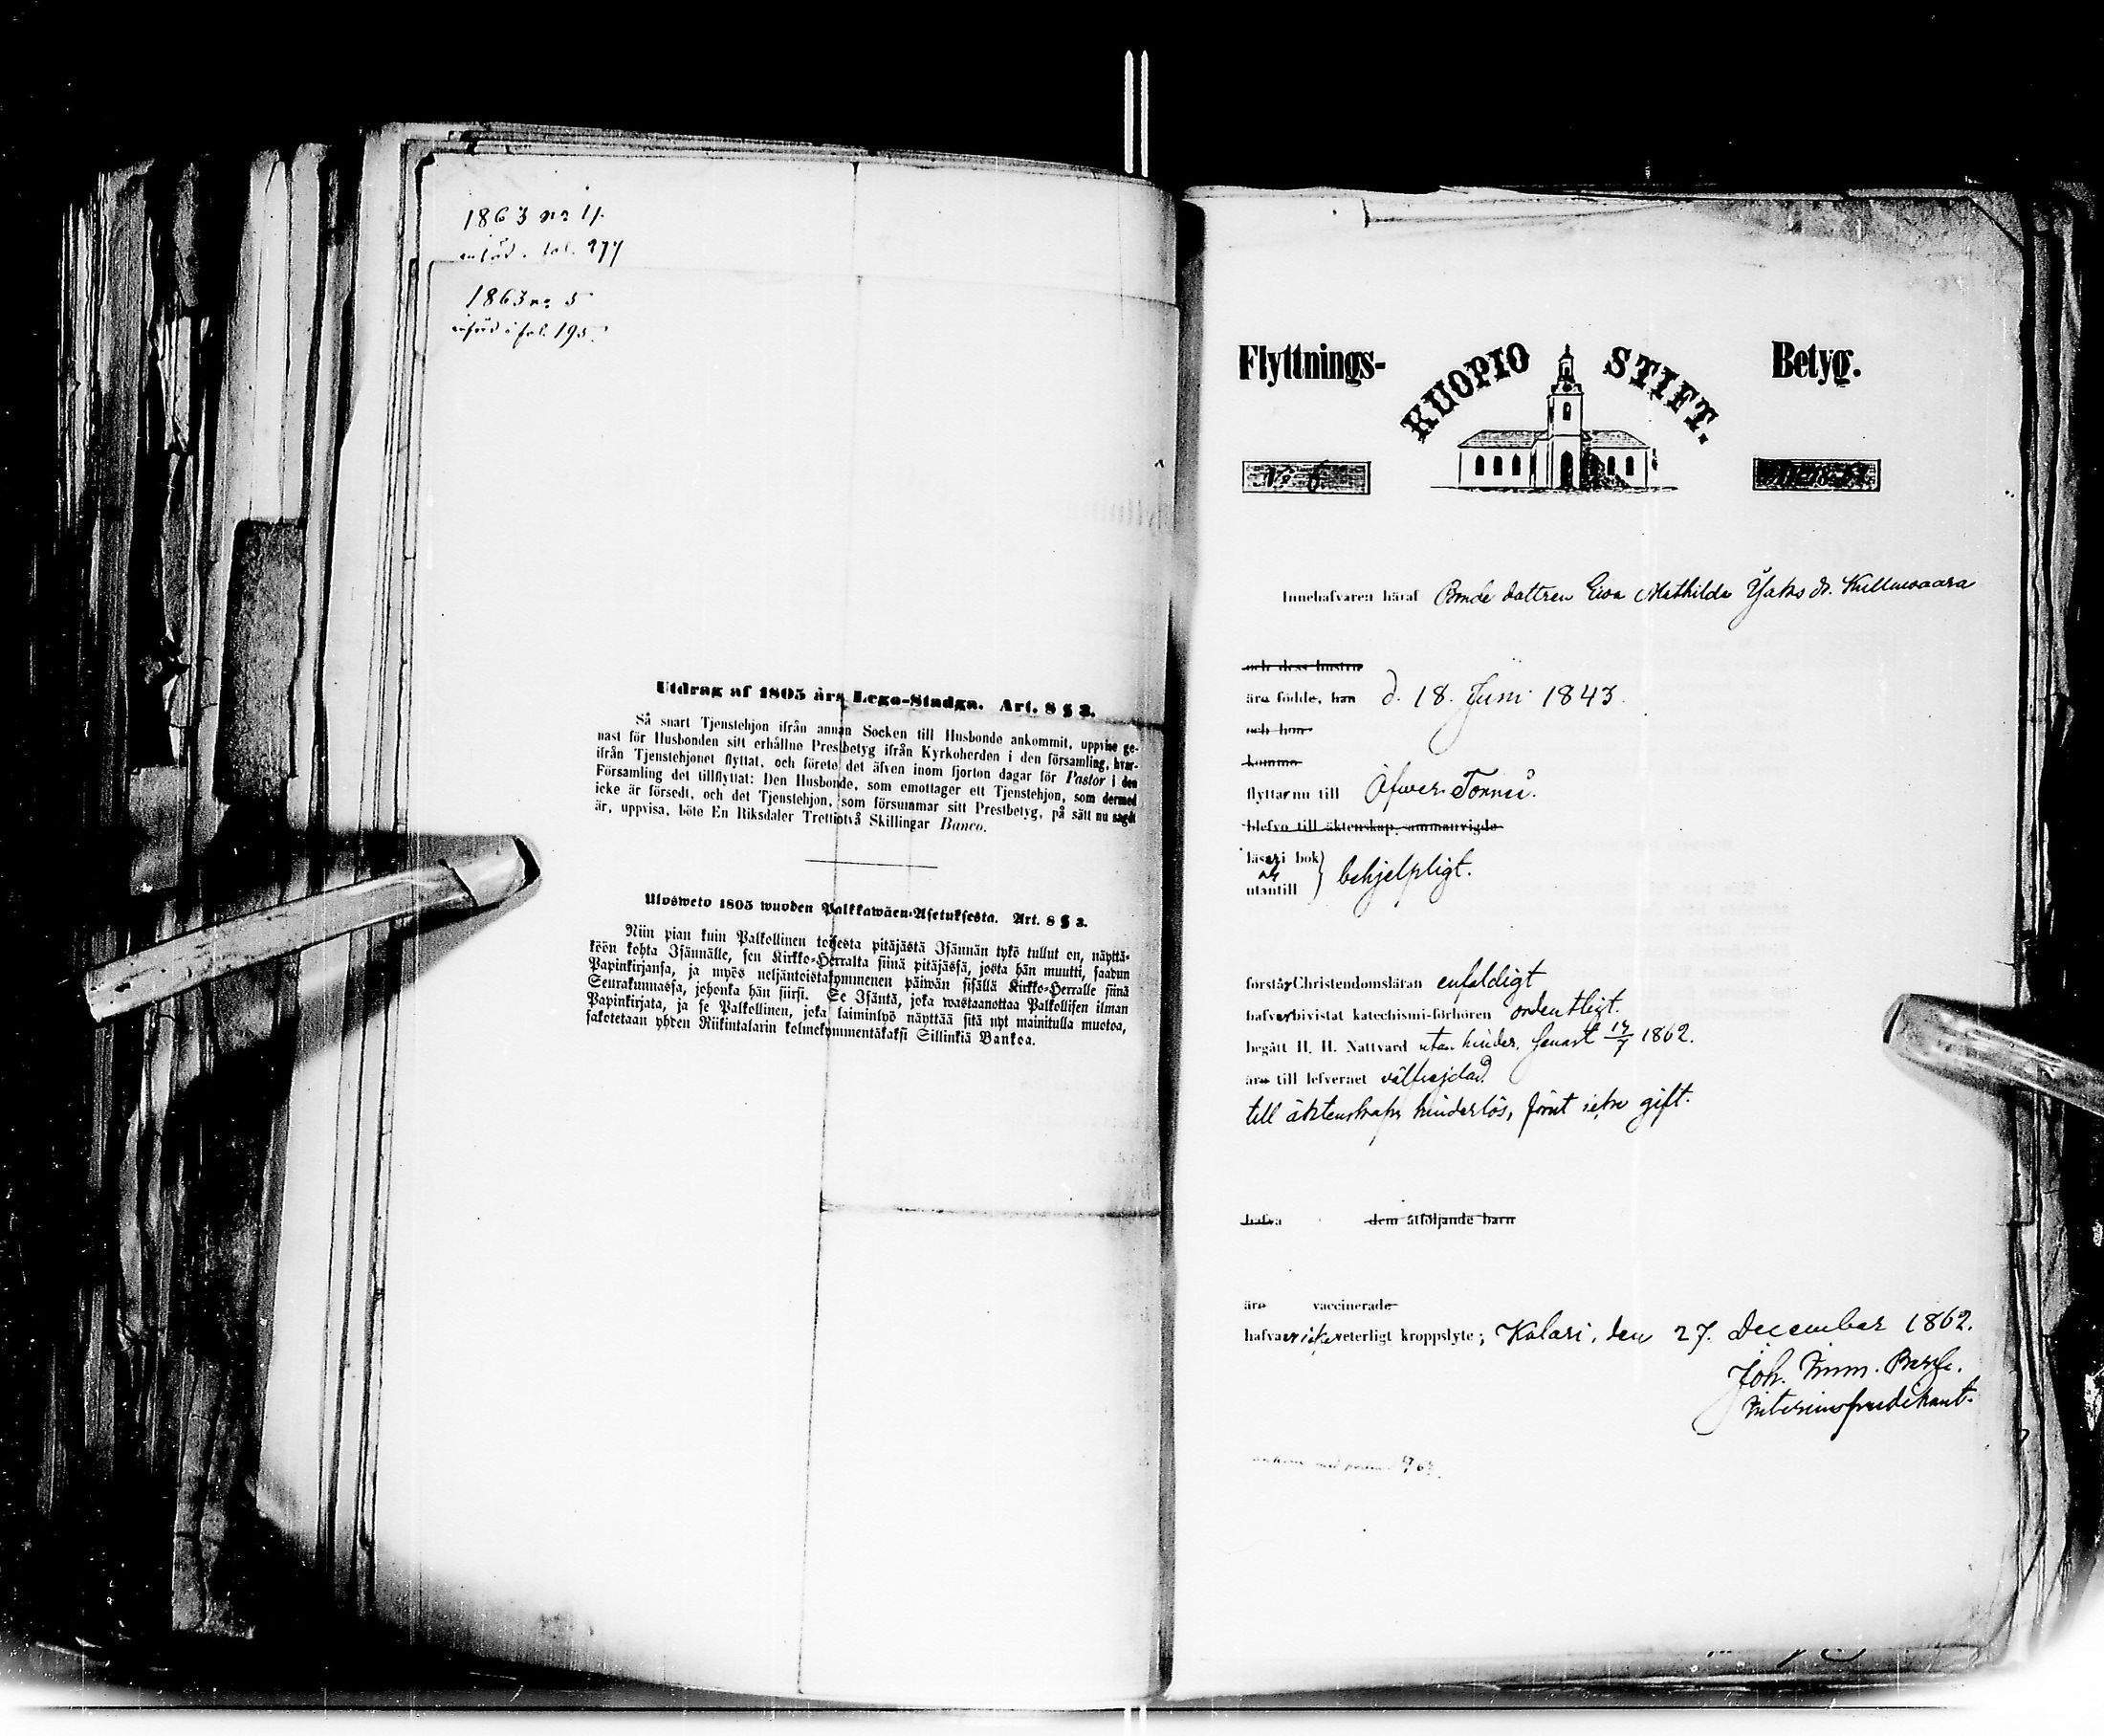 1863 no 4.
införd i fol. 277
1863 no 5
införd i fol. 195.
Utdrag af 1805 års Lego-Stadga. Art. 8 § 3.
Så snart Tjenstehjon ifrån annan Socken till Husbonde ankommit, uppvise ge-
nast för Husbonden sitt erhållne Prestbetyg ifrån Kyrkoherden i den församling, hvar-
ifrån Tjenstehjonet flyttat, och förete det äfven inom fjorton dagar för Pastor i den
Församling det tillflyttat: Den Husbonde, som emottager ett Tjenstehjon, som dermed
icke är försedt, och det Tjenstehjon, som försummar sitt Prestbetyg, på sätt nu sagdt
är, uppvisa, böte En Riksdaler Trettiotvå Skillingar Banco.
Ulosweto 1805 wuoden Palkkawäen-Asetuksesta. Art. 8 § 3.
Niin pian kuin Palkollinen toisesta pitäjästä Isännän tykö tullut on, näyttä-
köön kohta Isännälle, sen Kirkko-Herralta siinä pitäjässä, josta hän muutti, saadun
Papinkirjansa, ja myös neljäntoistakymmenen päiwän sisällä Kirkko-Herralle siinä
Seurakunnassa, johonka hän siirsi. Se Isäntä, joka wastaanottaa Palkollisen ilman
Papinkirjata, ja se Palkollinen, joka laiminlyö näyttää sitä nyt mainitulla muotoa,
sakotetaan yhden Riikintalarin kolmekymmentäkaksi Sillinkiä Bankoa.
Flyttnings- KUOPIO STIFT. Betyg.
No 6.
Innehafvaren häraf Bonde dottren Eva Mathilda Jaks dr. Kullawaara
och dess hustru
äro födde, han d. 18. Juni 1843.
och hon
komma
flyttar nu till Öfwer Torneå.
blefvo till äktenskap sammanvigde
läser i bok
och behjelpligt.
utantill
förstår Christendomsläran enfaldigt
hafver bivistat katechismi-förhören ordentligt.
begått H. H. Nattvard utan hinder, senast 14/7 1862.
äro till lefvernet välfrejdad.
till äktenskap hinderlös, förut icke gift.
hafva dem åtföljande barn
äro vaccinerade
hafva icke veterligt kroppslyte; Kolari, den 27. December 1862.
Joh. Imm.
Interimspredikant.